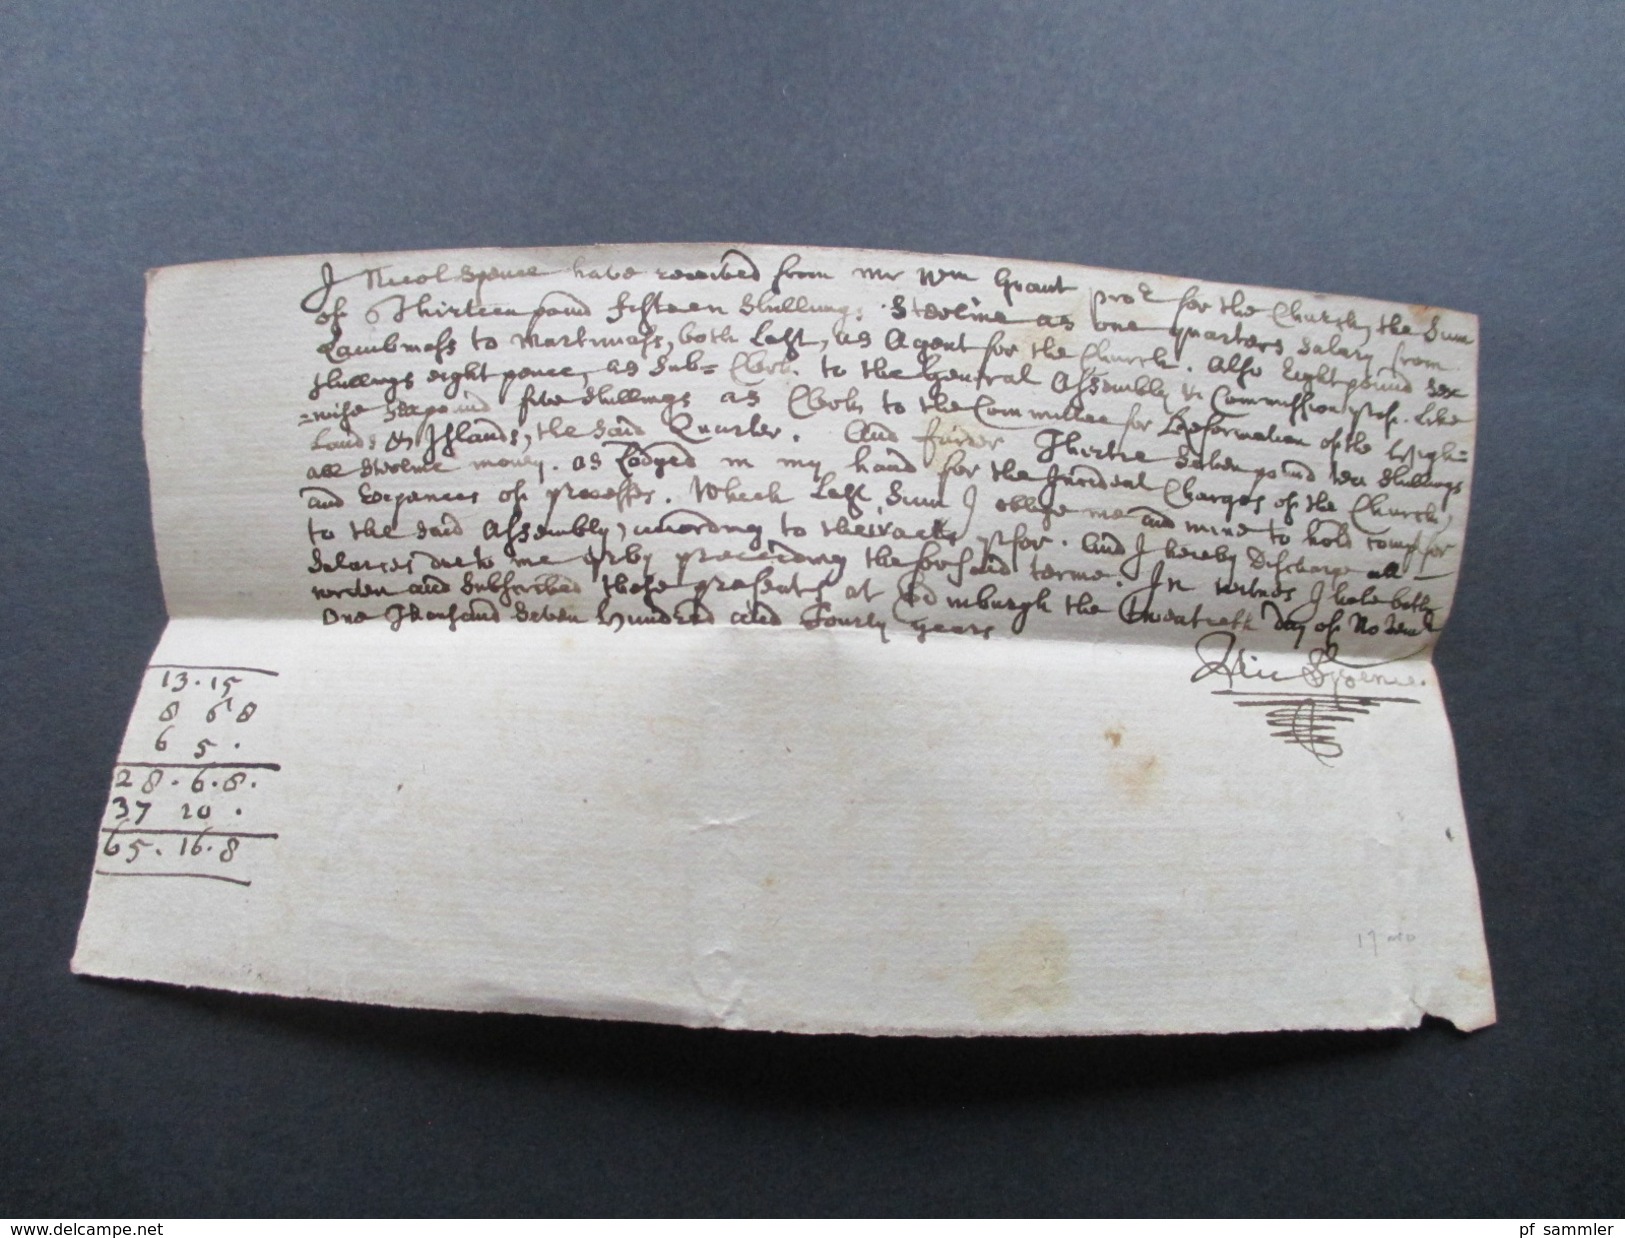 I Nicol Spence have received from Mr Wm Grant pror for the Church, the Sum
of Thirteen pound fifteen Shillings Sterline as one quarters Salary from
Lambmass to Martimass, both Last, as Agent for the Church. Also Eight pound sex
shillings eight pence, as Sub= Clerk to the General Assembly & Commission yrof. Like
=wise Sexpound five Shillings as Clerk to the Committee for Reformation of the High=
Lands & Islands, the said Quarter. And furder Thirtie Seven pound ten Shillings
all Sterline money. as Lodged in my hand for the Incident Charges of the Church,
and Expences of processes. Which Last Sum I oblige me and mine to hold compt for
to the said Assembly, according to their acts yrfor. And I hereby Discharge all
Salaries due to me yrby preceeding the forsaid terme. In witnes I have both
written and Subscribed these presents at Edinburgh the Twentieth Day of Novemr
One Thousand Seven Hundred and fourty years
Nic Spence.
13. 15
8 6 8
6 5 .
28. 6. 8.
37 10 .
65. 16. 8
delcampe.net
pf_sammler